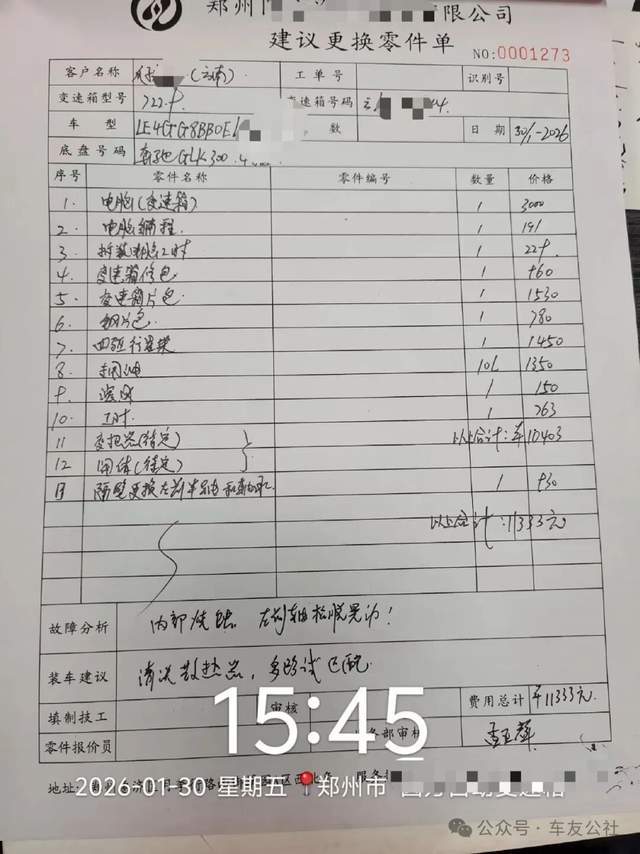 郑州 有限公司
建议更换零件单
NO:0001273
客户名称 (云南) 工单号 识别号
变速箱型号 722.9 变速箱号码
车型 LE4GG8BB0E 数 日期 30/1-2026
底盘号码 奔驰GLK300.4
序号 零件名称 零件编号 数量 价格
1. 电脑(变速箱) 1 3000
2. 电脑编程 1 191
3 拆装电脑工时 1 229
4. 变速箱修包 1 960
5. 变速箱片包 1 1530
6. 钢片包. 1 780
7. 四驱行星 1 1450
8. 油 10L 1350
9. 滤网 1 150
10. 工时 1 763
11 变扭器(待定) 以上合计:¥10403
12 阀体(待定)
更换左前半轴 1 930
以上合计:11333元
故障分析 内部烧蚀 左前轴
装车建议 清洗散热器,多路试匹配
填制技工 审核 费用总计 ¥11333元
零件报价员 务部审核
15:45
地址:
2026·01·30 星期五 郑州市
公众号·车友公社